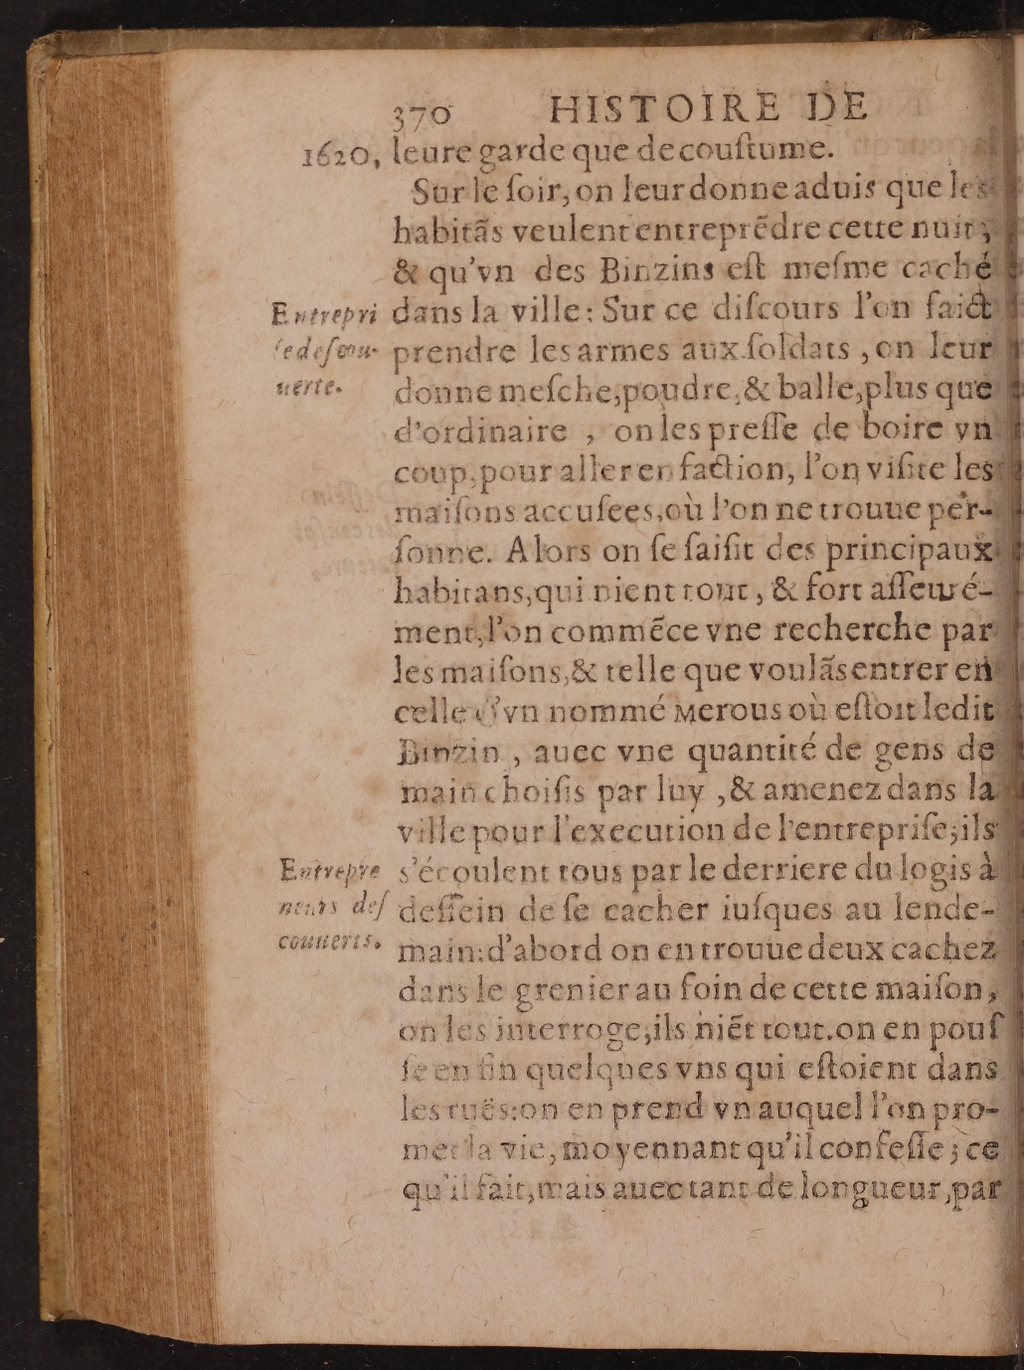 370 HISTOIRE DE
1620, leure garde que de couſtume.
Sur le ſoir, on leur donne aduis que les
habitãs veulent entreprẽdre cette nuit;
& qu'vn des Binzins eſt meſme caché
dans la ville: Sur ce diſcours l'on faict
prendre les armes aux ſoldats, on leur
donne meſche, poudre, & balle, plus que
d'ordinaire, on les preſſe de boire vn
coup, pour aller en faction, l'on viſite les
maiſons accuſees, où l'on ne trouue per-
ſonne. Alors on ſe ſaiſit des principaux
habitans, qui nient tout, & fort aſſeuré-
ment, l'on commẽce vne recherche par
les maiſons, & telle que voulãs entrer en
celle d'vn nommé Merous où eſtoit ledit
Binzin, auec vne quantité de gens de
main choiſis par luy, & amenez dans la
ville pour l'execution de l'entrepriſe; ils
s'écoulent tous par le derriere du logis à
deſſein de ſe cacher iuſques au lende-
main: d'abord on en trouue deux cachez
dans le grenier au foin de cette maiſon,
on les interroge, ils niẽt tout. on en pouſ
ſe en fin quelques vns qui eſtoient dans
les ruës: on en prend vn auquel l'on pro-
met la vie, moyennant qu'il confeſſe; ce
qu'il fait, mais auec tant de longueur, par
Entrepri
ſe deſcou-
uerte.
Entrepre
neurs deſ
couuerts.